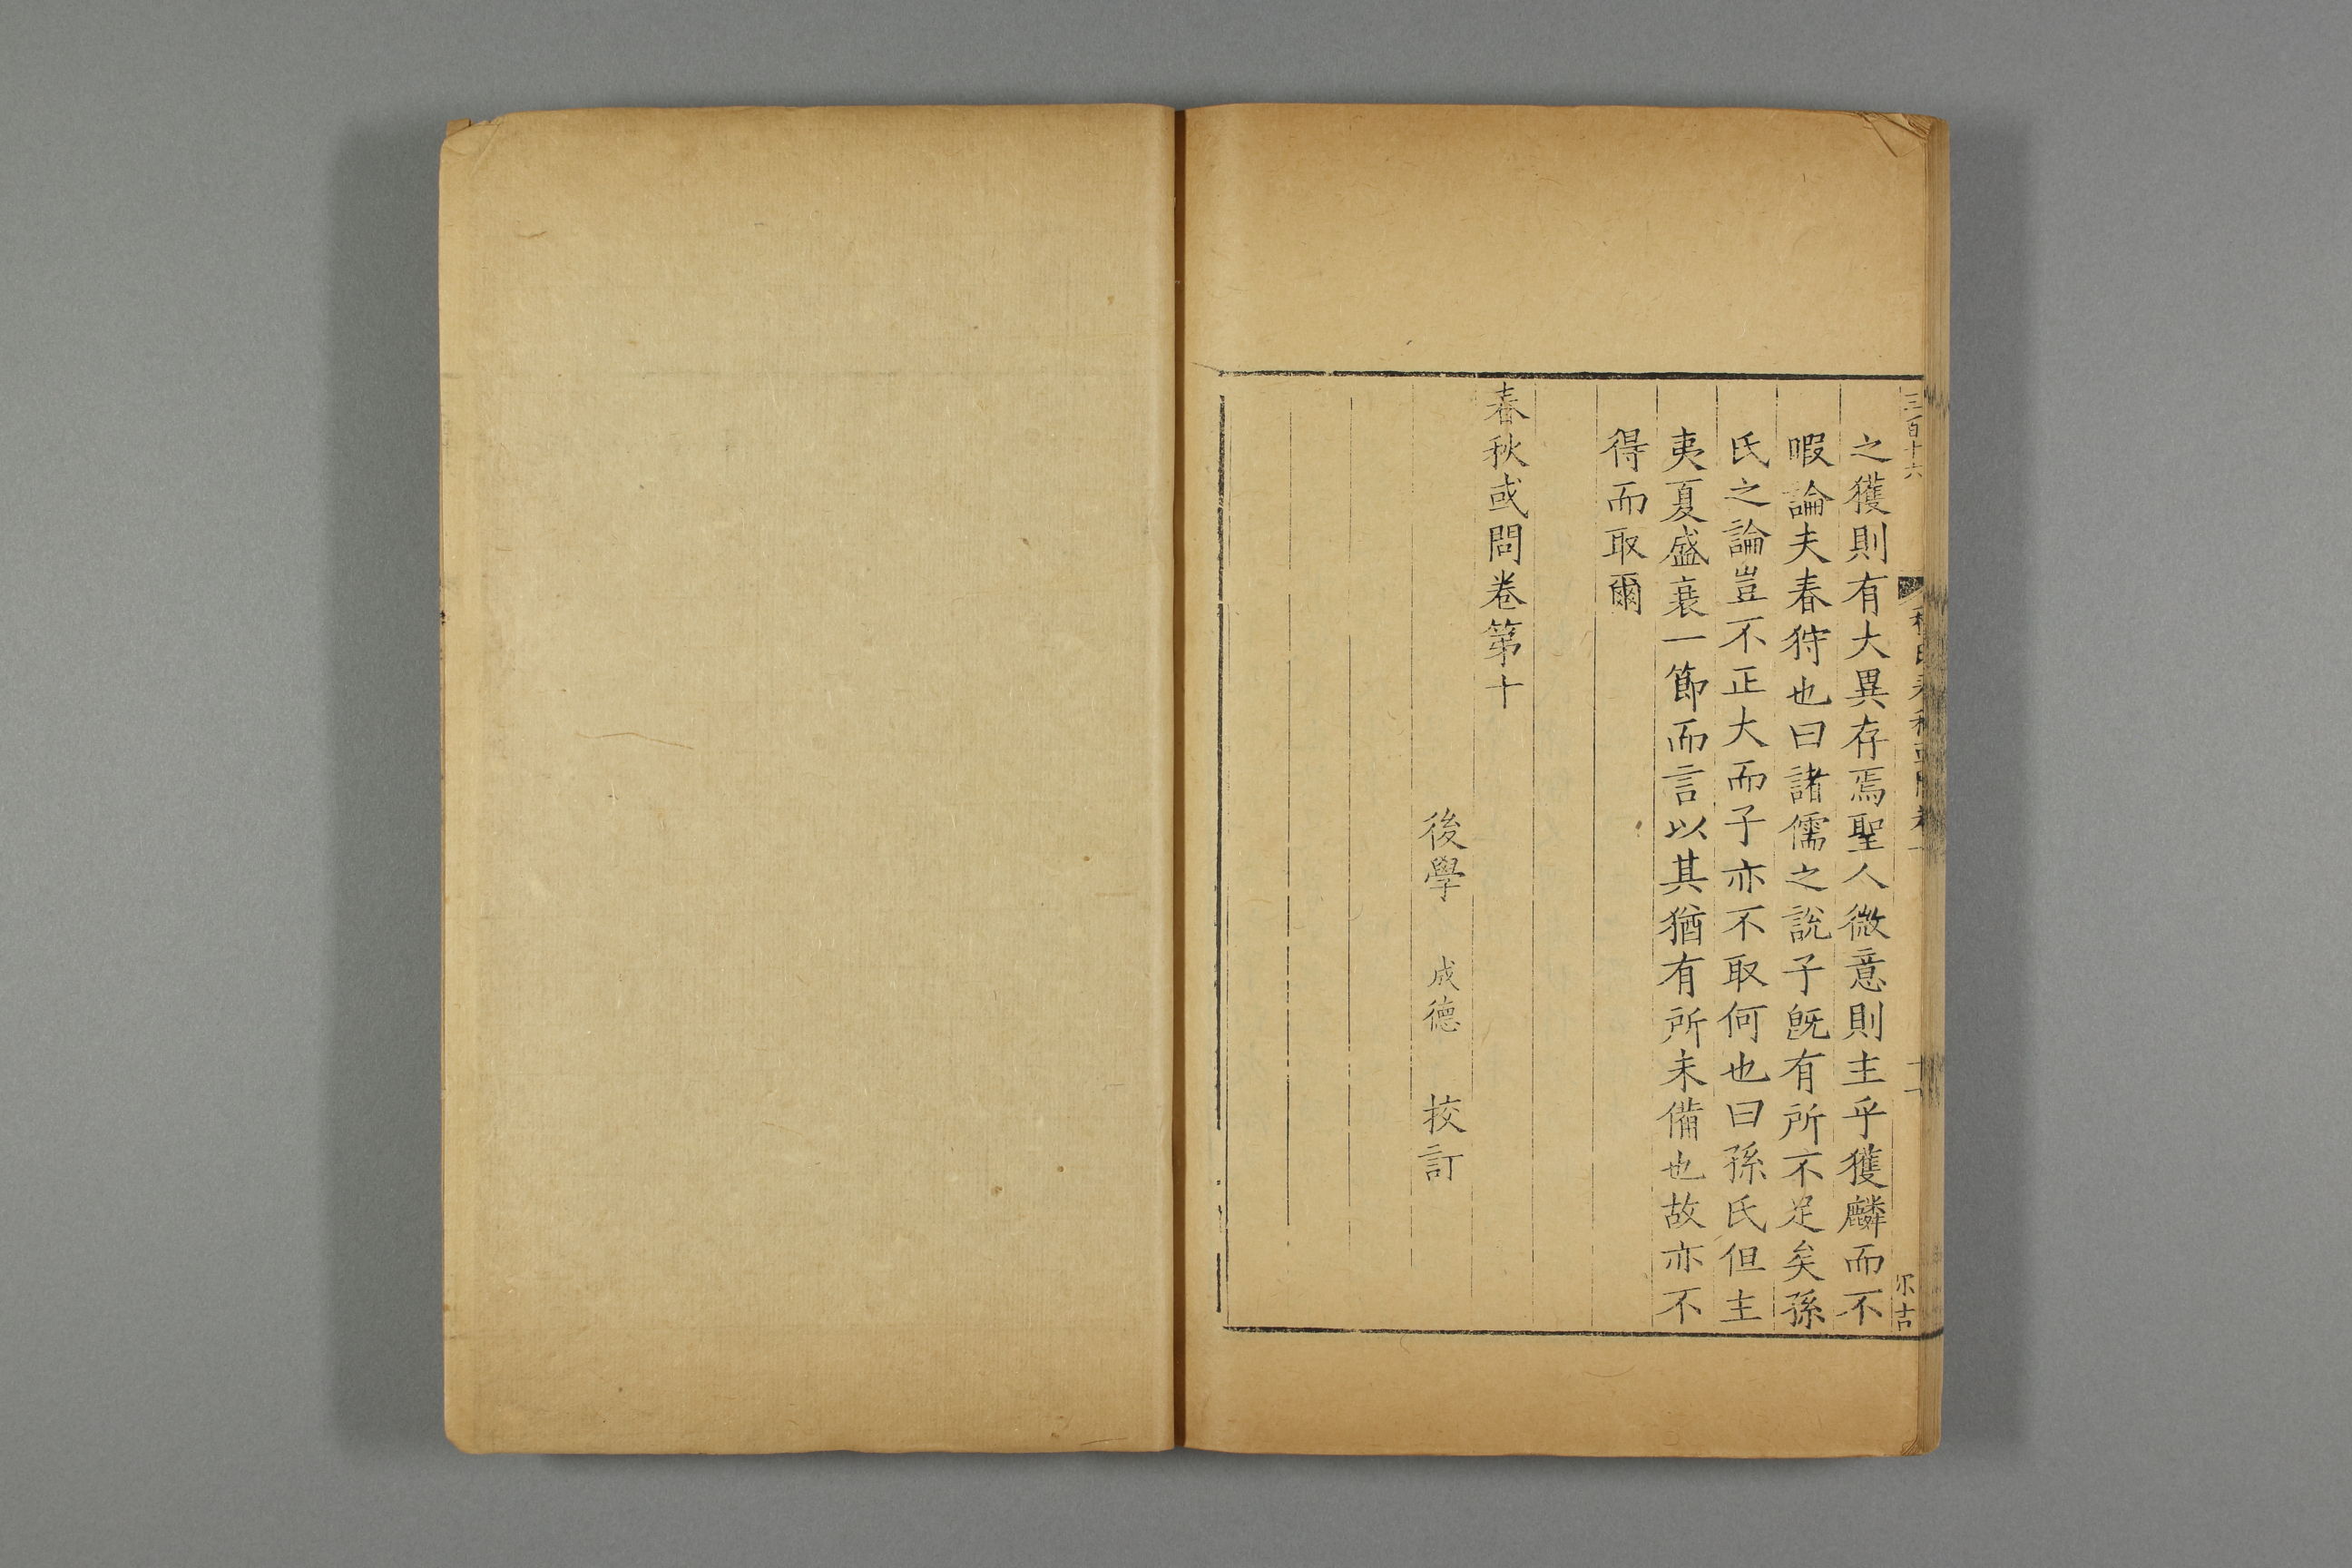 三百十六
之獲則有大異存焉聖人微意則主乎獲麟而不
暇論夫春狩也曰諸儒之說子旣有所不足矣孫
氏之論豈不正大而子亦不取何也曰孫氏但主
夷夏盛衰一節而言以其猶有所未備也故亦不
得而取爾
春秋或問卷第十
後學 成德 挍訂